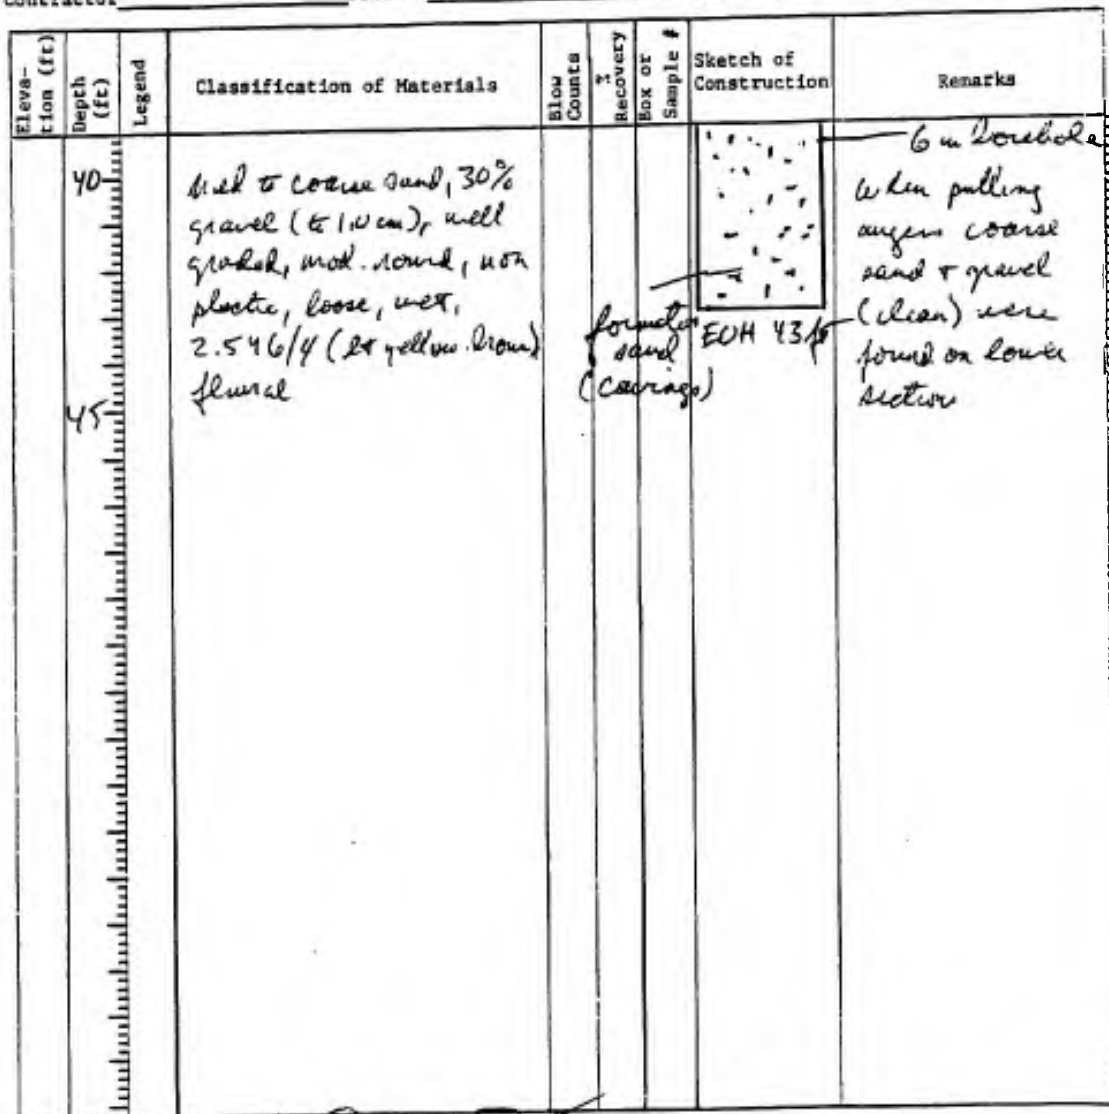 Contractor
Eleva-
tion (ft)
Depth
(ft)
Legend
Classification of Materials
Blow
Counts
%
Recovery
Box or
Sample #
Sketch of
Construction
Remarks
40
45
Med to coarse sand, 30%
gravel (to 1.0 cm), well
graded, mod. round, non
plastic, loose, wet,
2.5Y6/4 (lt yellow. brown)
fluvial
formation
sand
(cavings)
EOH 43 ft
6 in borehole
When pulling
augers coarse
sand + gravel
(clean) were
found on lower
section